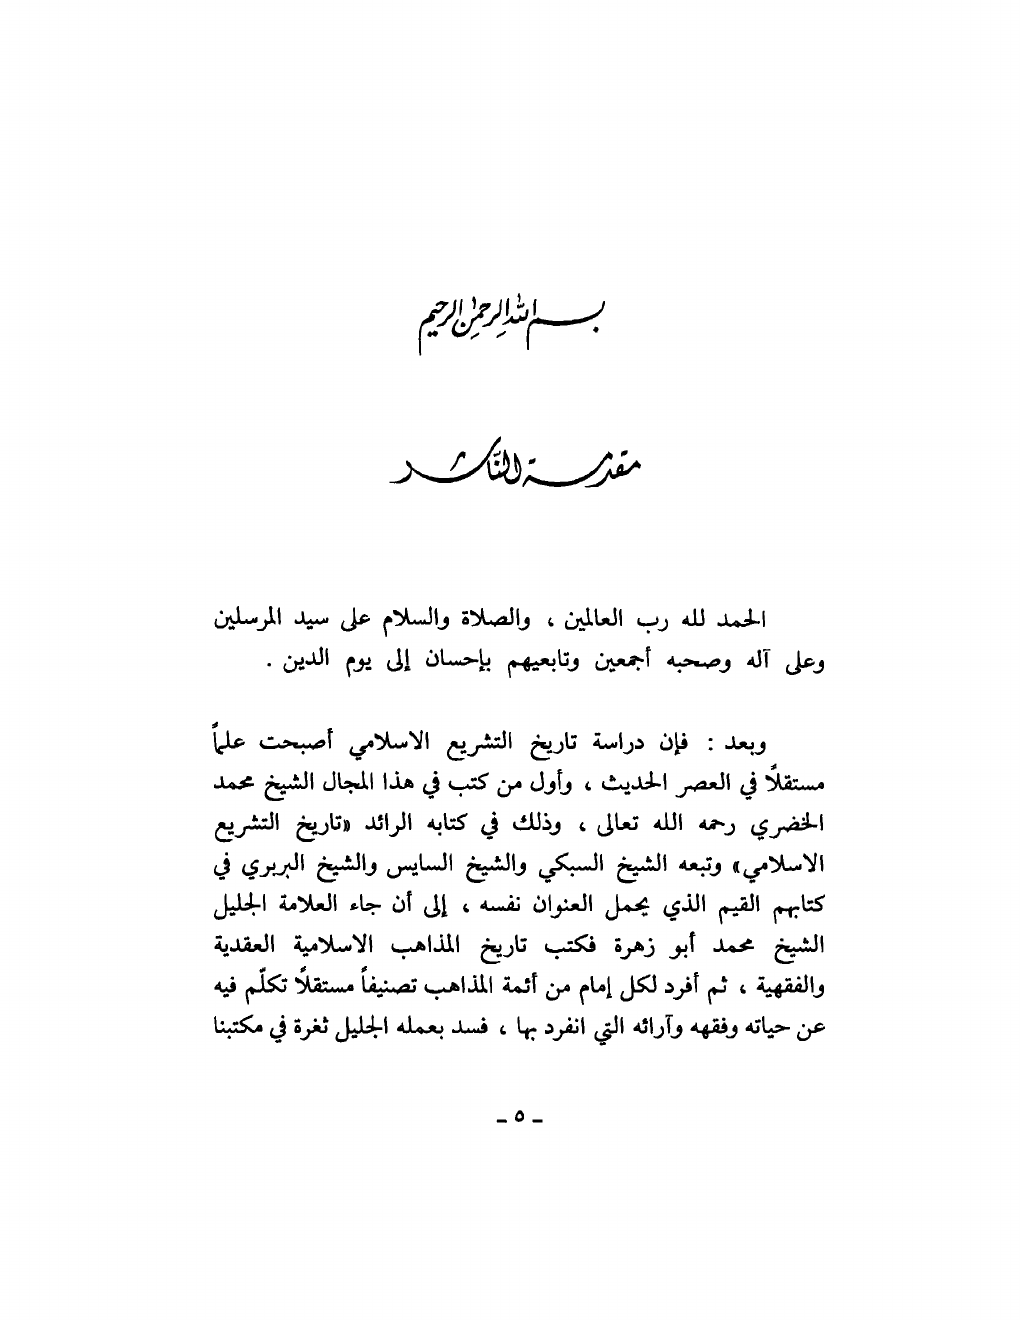 بسم الله الرحمن الرحيم
مقدمة الناشر
الحمد لله رب العالمين ، والصلاة والسلام على سيد المرسلين
وعلى آله وصحبه أجمعين وتابعيهم بإحسان إلى يوم الدين .
وبعد : فإن دراسة تاريخ التشريع الاسلامي أصبحت علماً
مستقلًا في العصر الحديث ، وأول من كتب في هذا المجال الشيخ محمد
الخضري رحمه الله تعالى ، وذلك في كتابه الرائد «تاريخ التشريع
الاسلامي» وتبعه الشيخ السبكي والشيخ السايس والشيخ البربري في
كتابهم القيم الذي يحمل العنوان نفسه ، إلى أن جاء العلامة الجليل
الشيخ محمد أبو زهرة فكتب تاريخ المذاهب الاسلامية العقدية
والفقهية ، ثم أفرد لكل إمام من أئمة المذاهب تصنيفاً مستقلًا تكلّم فيه
عن حياته وفقهه وآرائه التي انفرد بها ، فسد بعمله الجليل ثغرة في مكتبنا
ـ ٥ ـ